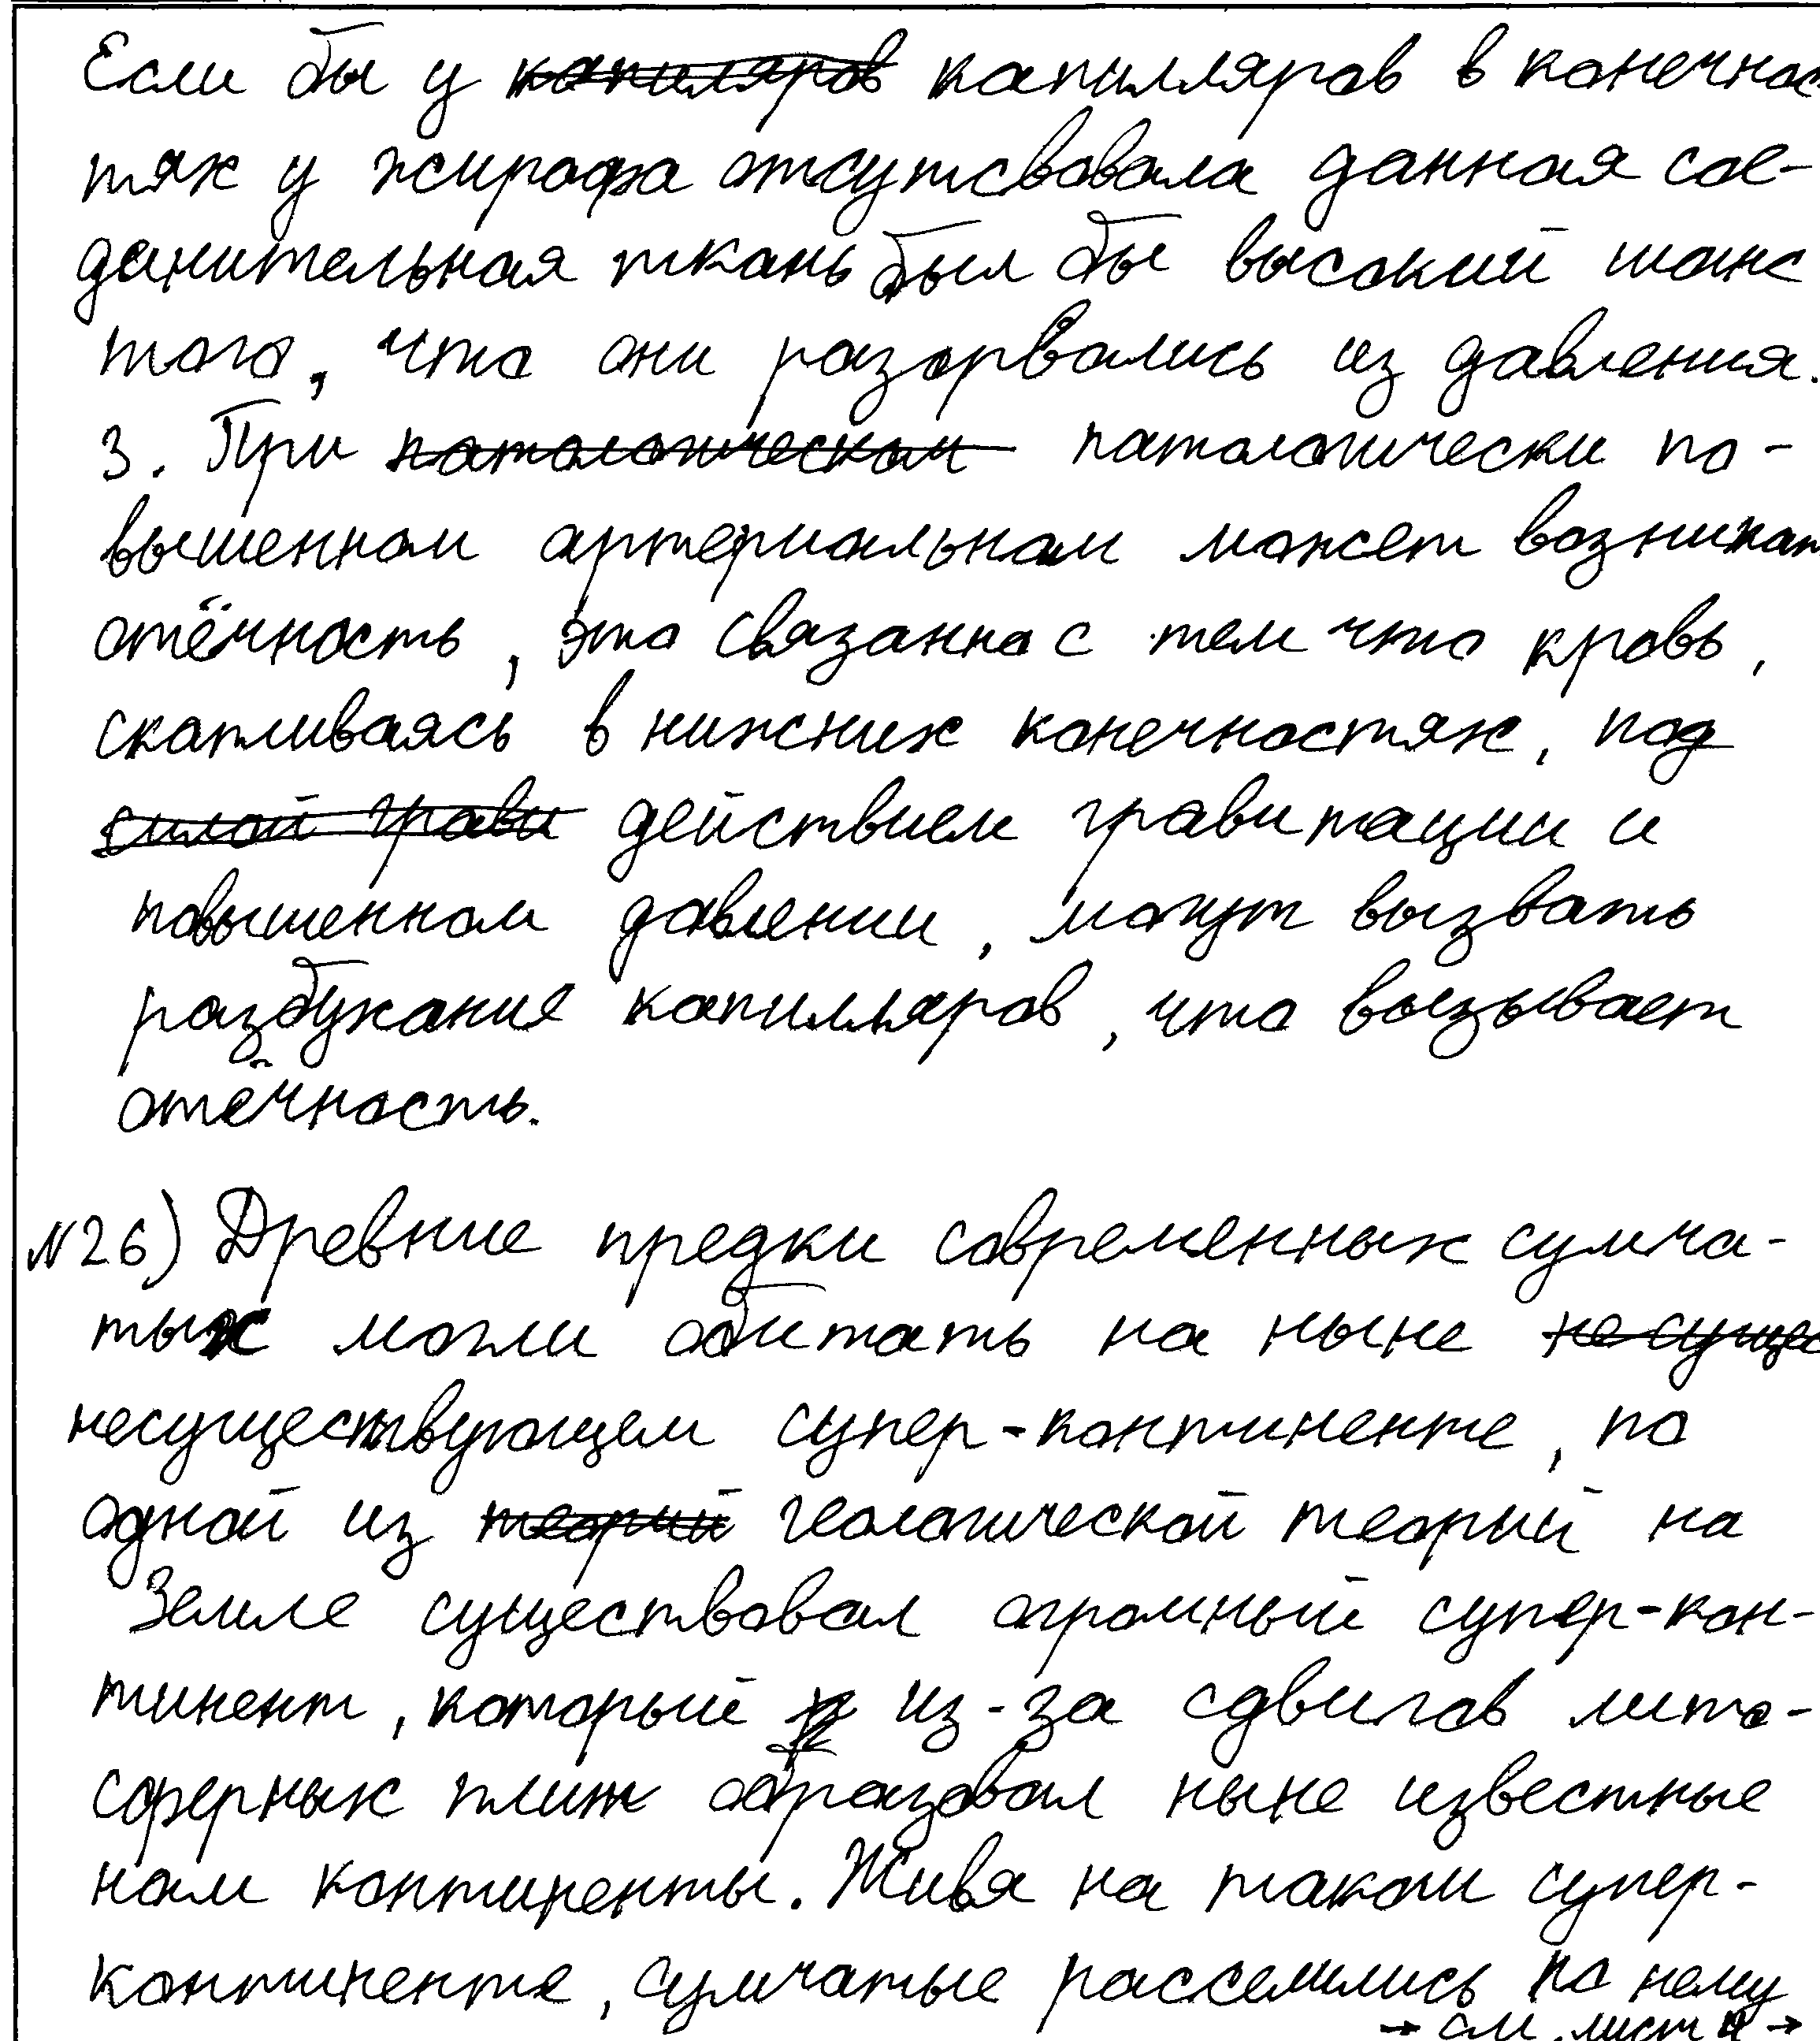 Если бы у ~~капиляров~~ капилляров в конечнос
тях у жирафа отсутсвовала данная сое-
денительная ткань был бы высокий шанс
того, что они разорвались из давления.
3. При ~~патологическом~~ патологически по-
вышенном артериальном может возникат
отёчность, это связанно с тем что кровь,
скапливаясь в нижних конечностях, под
~~силой грави~~ действием гравитации и
повышенном давлении, могут вызвать
разбухание капилляров, что вызывает
отёчность.
№26) Древние предки современных сумча-
тых могли обитать на ныне ~~не сущес~~
несуществующем супер-континенте, по
одной из ~~теорий~~ геологической теорий на
Земле существовал огромный супер-кон-
тинент, который из-за сдвигов лито-
сферных плит образовал ныне известные
нам континенты. Живя на таком супер-
континенте, сумчатые расселились по нему
→ см. лист 4 →